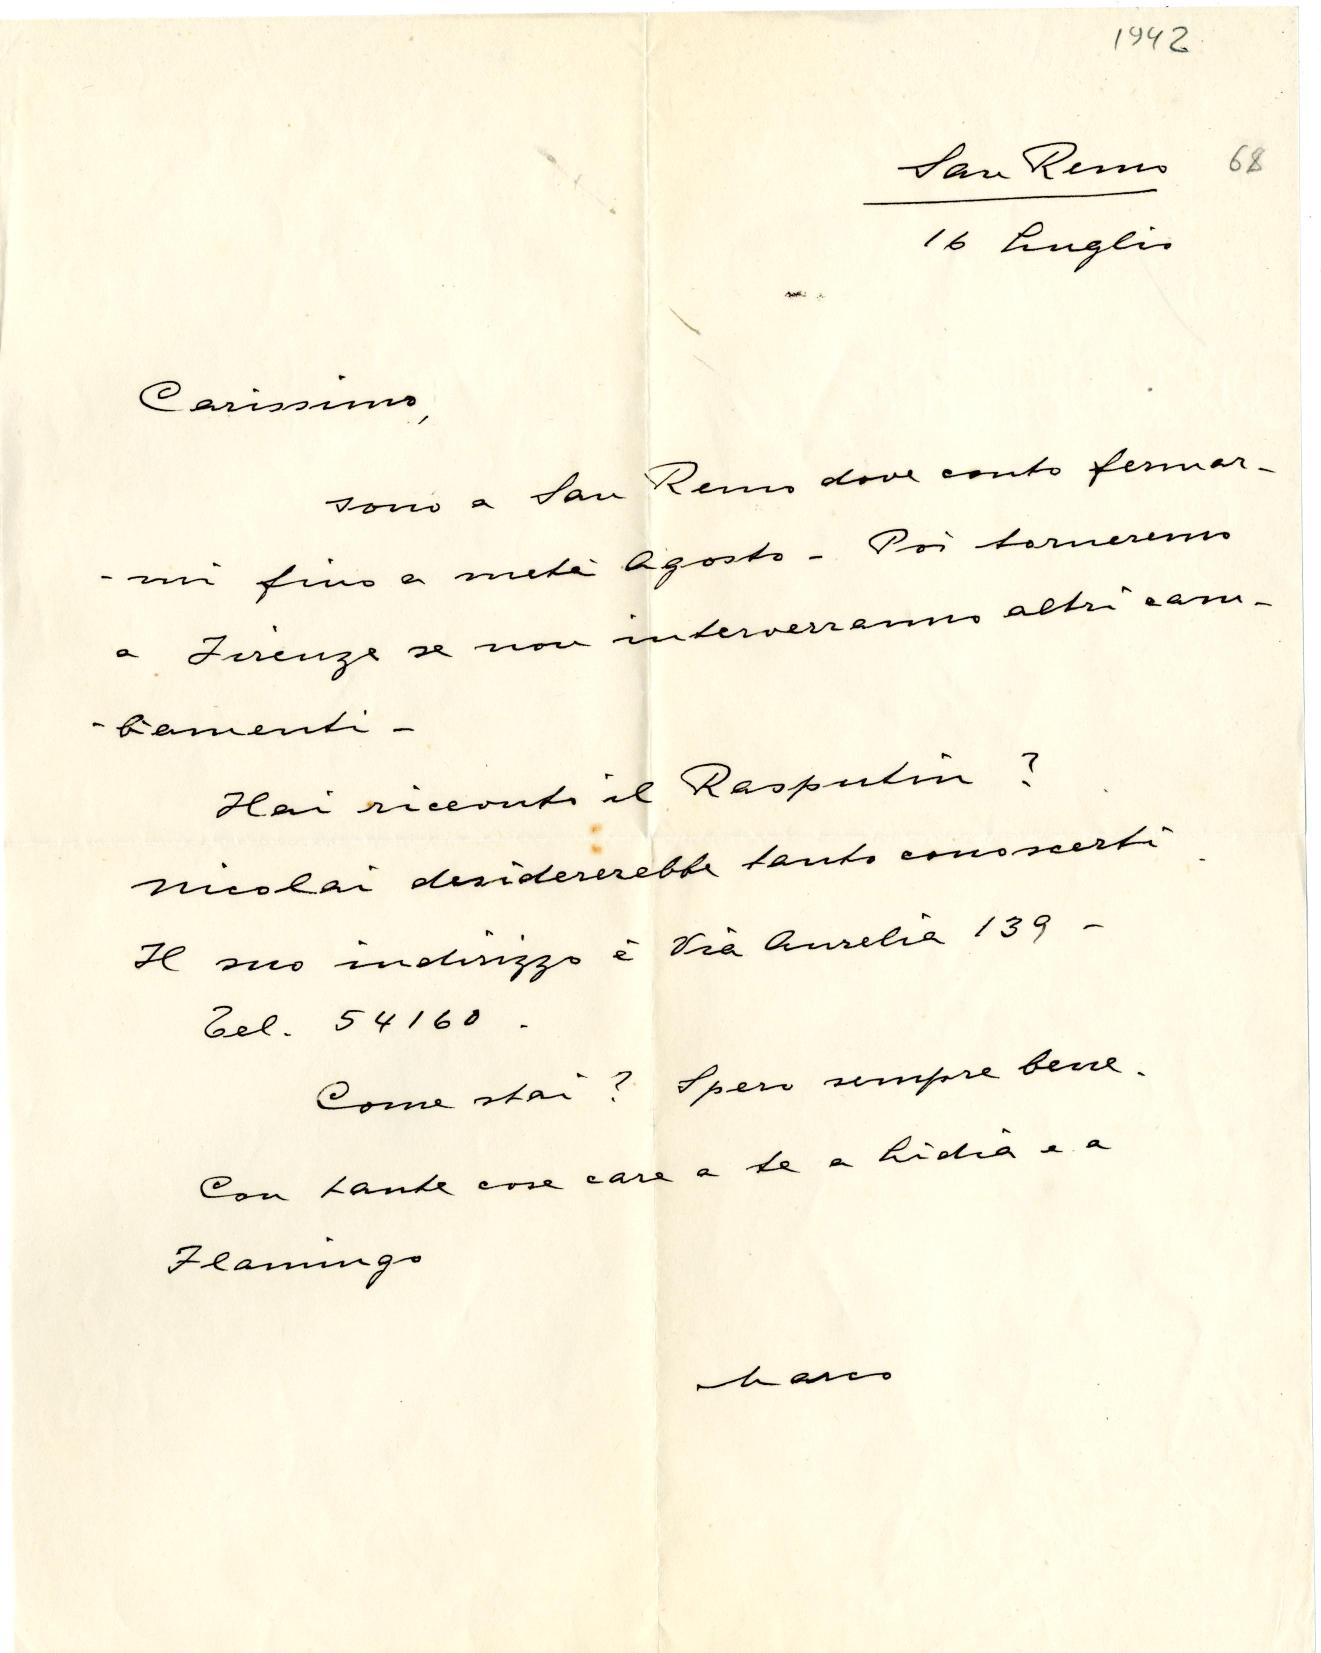 1942
San Remo 68
16 Luglio
Carissimo,
sono a San Remo dove conto fermar-
-mi fino a metà Agosto - Poi torneremo
a Firenze se non interverranno altri cam-
-biamenti -
Hai ricevuto il Rasputin ?
Nicolai desidererebbe tanto conoscerti
Il suo indirizzo è Via Aurelia 139 -
Tel. 54160 .
Come stai ? Spero sempre bene.
Con tante cose care a te a Lidia e a
Flamingo
Marco